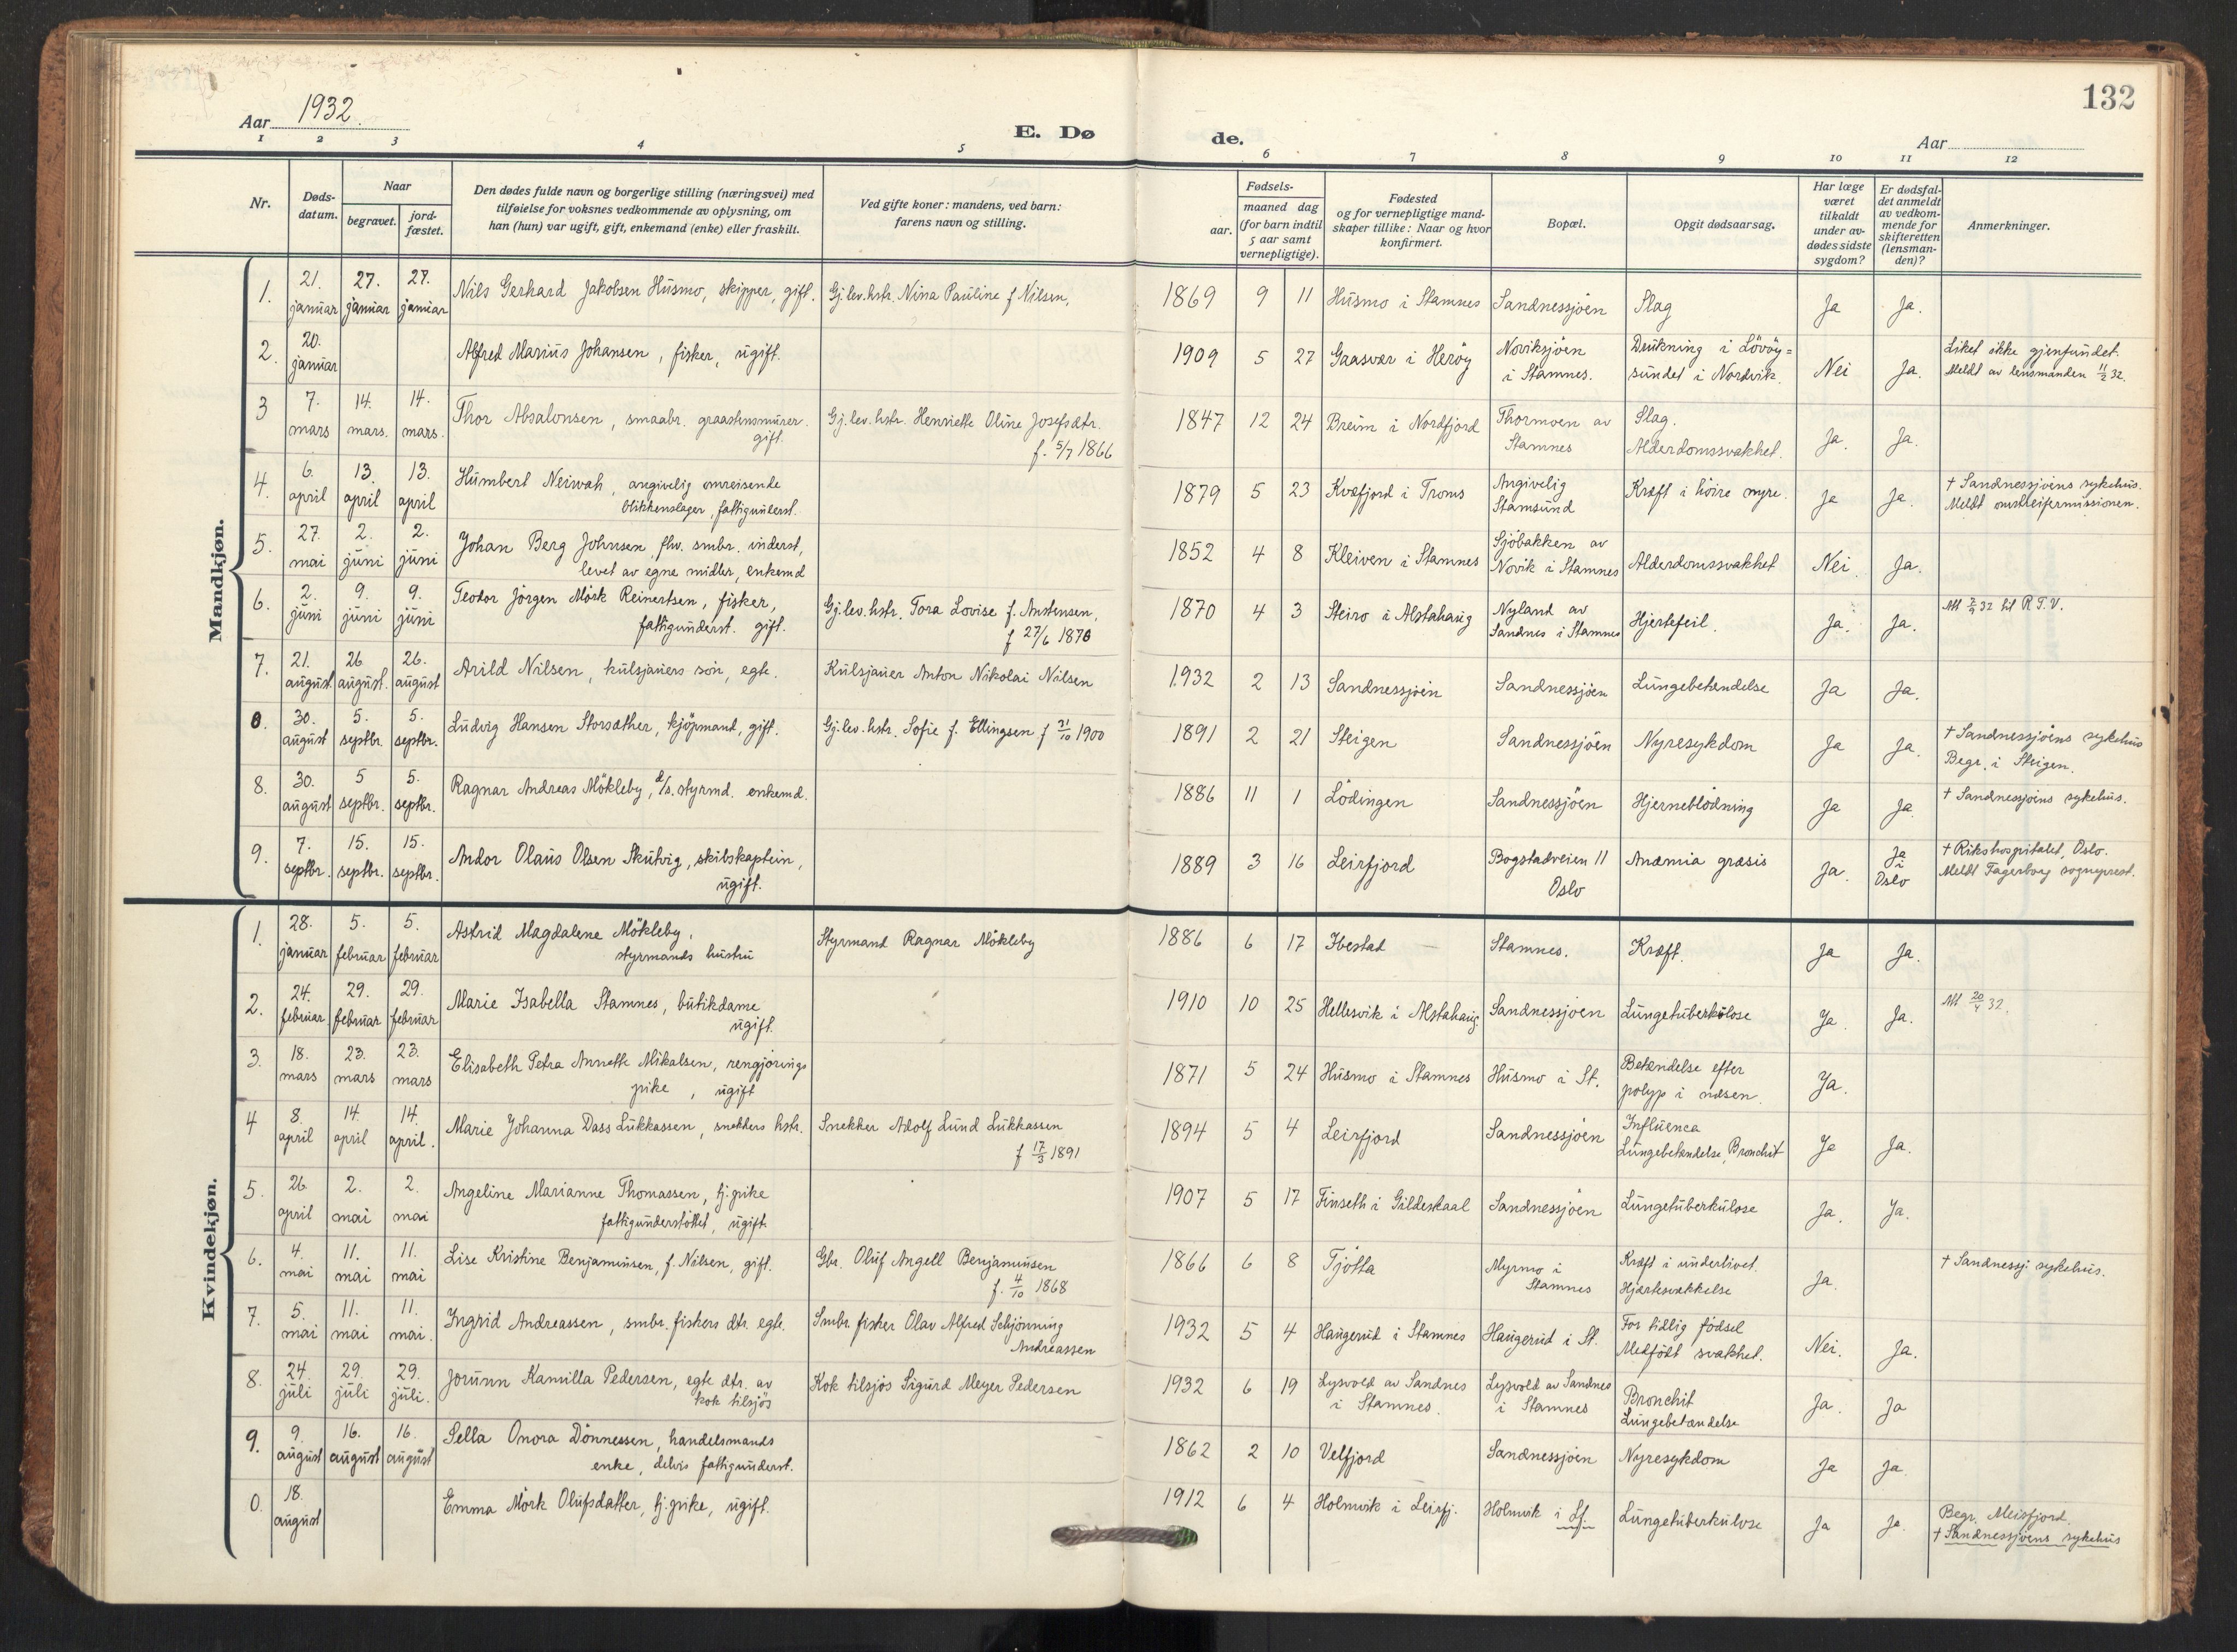 132
Aar 1932.
E. Dø
de.
Aar
1 2 3 4 5 6 7 8 9 10 11 12
Nr.
Døds-
datum.
Naar
begravet.
jord-
fæstet.
Den dødes fulde navn og borgerlige stilling (næringsvei) med
tilføielse for voksnes vedkommende av oplysning, om
han (hun) var ugift, gift, enkemand (enke) eller fraskilt.
Ved gifte koner: mandens, ved barn:
farens navn og stilling.
Fødsels-
aar.
maaned dag
(for barn indtil
5 aar samt
vernepligtige).
Fødested
og for vernepligtige mand-
skaper tillike: Naar og hvor
konfirmert.
Bopæl.
Opgit dødsaarsag.
Har læge
været
tilkaldt
under av-
dødes sidste
sygdom?
Er dødsfal-
det anmeldt
av vedkom-
mende for
skifteretten
(lensman-
den)?
Anmerkninger.
Mandkjøn.
1. 21. januar 27. januar 27. januar Nils Gerhard Jakobsen Husmo, skipper, gift. Gj.lev.hstr. Nina Pauline f Nilsen, 1869 9 11 Husmo i Stamnes Sandnessjöen Slag Ja Ja.
2. 20. januar Alfred Marius Johansen, fisker, ugift. 1909 5 27 Gaasvær i Heröy Noviksjöen i Stamnes. Drukning i Lövöy=
sundet i Nordvik. Nei Ja. Liket ikke gjenfundet.
Meldt av lensmanden 11/2 32.
3 7. mars 14. mars. 14. mars. Thor Absalonsen, smaabr. graastensmurer.
gift. Gj.lev.hstr. Henriette Oline Josefsdtr.
f. 5/7 1866 1847 12 24 Breim i Nordfjord Thormoen av
Stamnes Slag.
Alderdomssvakhet. Ja. Ja.
4. 6. april 13. april 13. april Humbert Neiwah, angivelig omreisende
blikkenslager, fattigunderst. 1879 5 23 Kvæfjord i Troms Angivelig
Stamsund Kræft i höire nyre. Ja Ja. † Sandnessjöens sykehus.
Meldt omstreifermissionen.
5. 27. mai 2. juni 2. juni Johan Berg Johnsen, fhv. smbr. inderst,
levet av egne midler, enkemd 1852 4 8 Kleiven i Stamnes Sjöbakken av
Novik i Stamnes Alderdomssvakhet Nei. Ja.
6. 2. juni 9. juni 9. juni Teodor Jörgen Mörk Reinertsen, fisker,
fattigunderst. gift. Gj.lev.hstr. Tora Lovise f. Anstensen,
f 27/6 1870 1870 4 3 Steiro i Alstahaug Nyland av
Sandnes i Stamnes Hjertefeil. Ja. Ja. 32 til R.T.V.
7. 21. august 26. august. 26. august Arild Nilsen, kulsjauers sön, egte. Kulsjauer Anton Nikolai Nilsen 1932 2 13 Sandnessjöen Sandnessjöen Lungebetændelse Ja Ja.
0. 30. august 5. septbr. 5. septbr. Ludvig Hansen Storsæther, kjöpmand, gift. Gj.lev.hstr. Sofie f. Ellingsen f 31/10 1900 1891 2 21 Steigen Sandnessjöen Nyresykdom Ja Ja. † Sandnessjöens sykehus
Begr. i Steigen.
8. 30. august 5 septbr. 5. septbr. Ragnar Andreas Mökleby, d/s. styrmd. enkemd. 1886 11 1 Lödingen Sandnessjöen Hjerneblödning Ja Ja. † Sandnessjöens sykehus.
9. 7. septbr. 15. septbr. 15. septbr. Andor Olaus Olsen Skutvig, skibskaptein,
ugift. 1889 3 16 Leirfjord Bogstadveien 11
Oslo Anæmia græsis Ja. Ja
i
Oslo † Rikshospitalet, Oslo.
Meldt Fagerborg sogneprest.
Kvindekjøn.
1. 28. januar 5. februar 5. februar Astrid Magdalene Mökleby,
styrmands hustru Styrmand Ragnar Mökleby 1886 6 17 Ibestad Stamnes. Kræft. Ja Ja.
2. 24. februar 29. februar 29. februar Marie Isabella Stamnes, butikdame
ugift. 1910 10 25 Hellesvik i Alstahaug. Sandnessjöen Lungetuberkulose Ja. Ja. Mt 20/4 32.
3. 18. mars 23. mars 23. mars Elisabeth Petra Annette Mikalsen, rengjörings
pike, ugift 1871 5 24 Husmo i Stamnes Husmo i St. Betændelse efter
polyp i næsen. Ja.
4 8. april 14. april 14. april. Marie Johanna Dass Lukkassen, snekkers hstr. Snekker Adolf Lund Lukkassen
f 17/3 1891 1894 5 4 Leirfjord Sandnessjöen Influenca
Lungebetændelse, Bronchit Ja Ja.
5. 26. april 2. mai 2. mai Angeline Marianne Thomassen, tj.pike
fattigunderstöttet, ugift. 1907 5 17 Finseth i Gildeskaal Sandnessjöen Lungetuberkulose Ja. Ja.
6. 4. mai 11. mai 11. mai Lise Kristine Benjaminsen, f. Nilsen, gift. Gbr. Oluf Angell Benjaminsen
f. 4/10 1868 1866 6 8 Tjötta Myrmo i
Stamnes Kræft i underlivet.
Hjertesvækkelse Ja. † Sandnessj. sykehus.
7. 5. mai 11. mai 11. mai. Ingrid Andreassen, smbr. fiskers dtr. egte. Smbr. fisker Olav Alfred Schjönning
Andreassen 1932 5 4 Haugerud i Stamnes Haugerud i St. For tidlig födsel
Medfödt svakhet. Nei. Ja.
8. 24. juli 29. juli 29. juli. Jorunn Kamilla Pedersen, egte dtr. av
kok tilsjös Kok tilsjös Sigurd Meyer Pedersen 1932 6 19 Lysvold av Sandnes
i Stamnes. Lysvold av Sandnes
i Stamnes Bronchit
Lungebetændelse Ja. Ja
9. 9. august 16. august 16. august Sella Onora Dönnessen, handelsmands
enke, delvis fattigunderst. 1862 2 10 Velfjord Sandnessjöen Nyresykdom Ja Ja.
0. 18. august Emma Mörk Olufsdatter, tj.pike, ugift. 1912 6 4 Holmvik i Leirfj. Holmvik i Lf. Lungetuberkulose Ja Ja. Begr. Meisfjord.
† Sandnessjöens sykehus